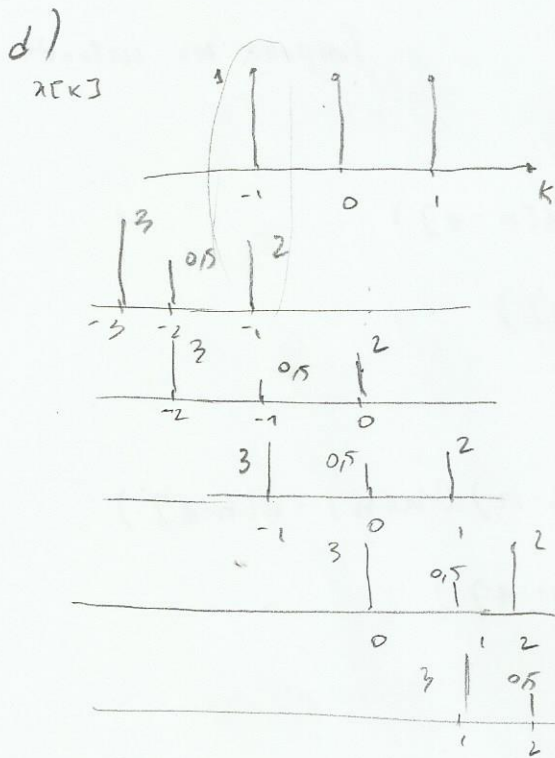 d)
x[k]
1
-1 0 1 K
3 0,5 2
-3 -2 -1
3 0,5 2
-2 -1 0
3 0,5 2
-1 0 1
3 0,5 2
0 1 2
3 0,5
1 2